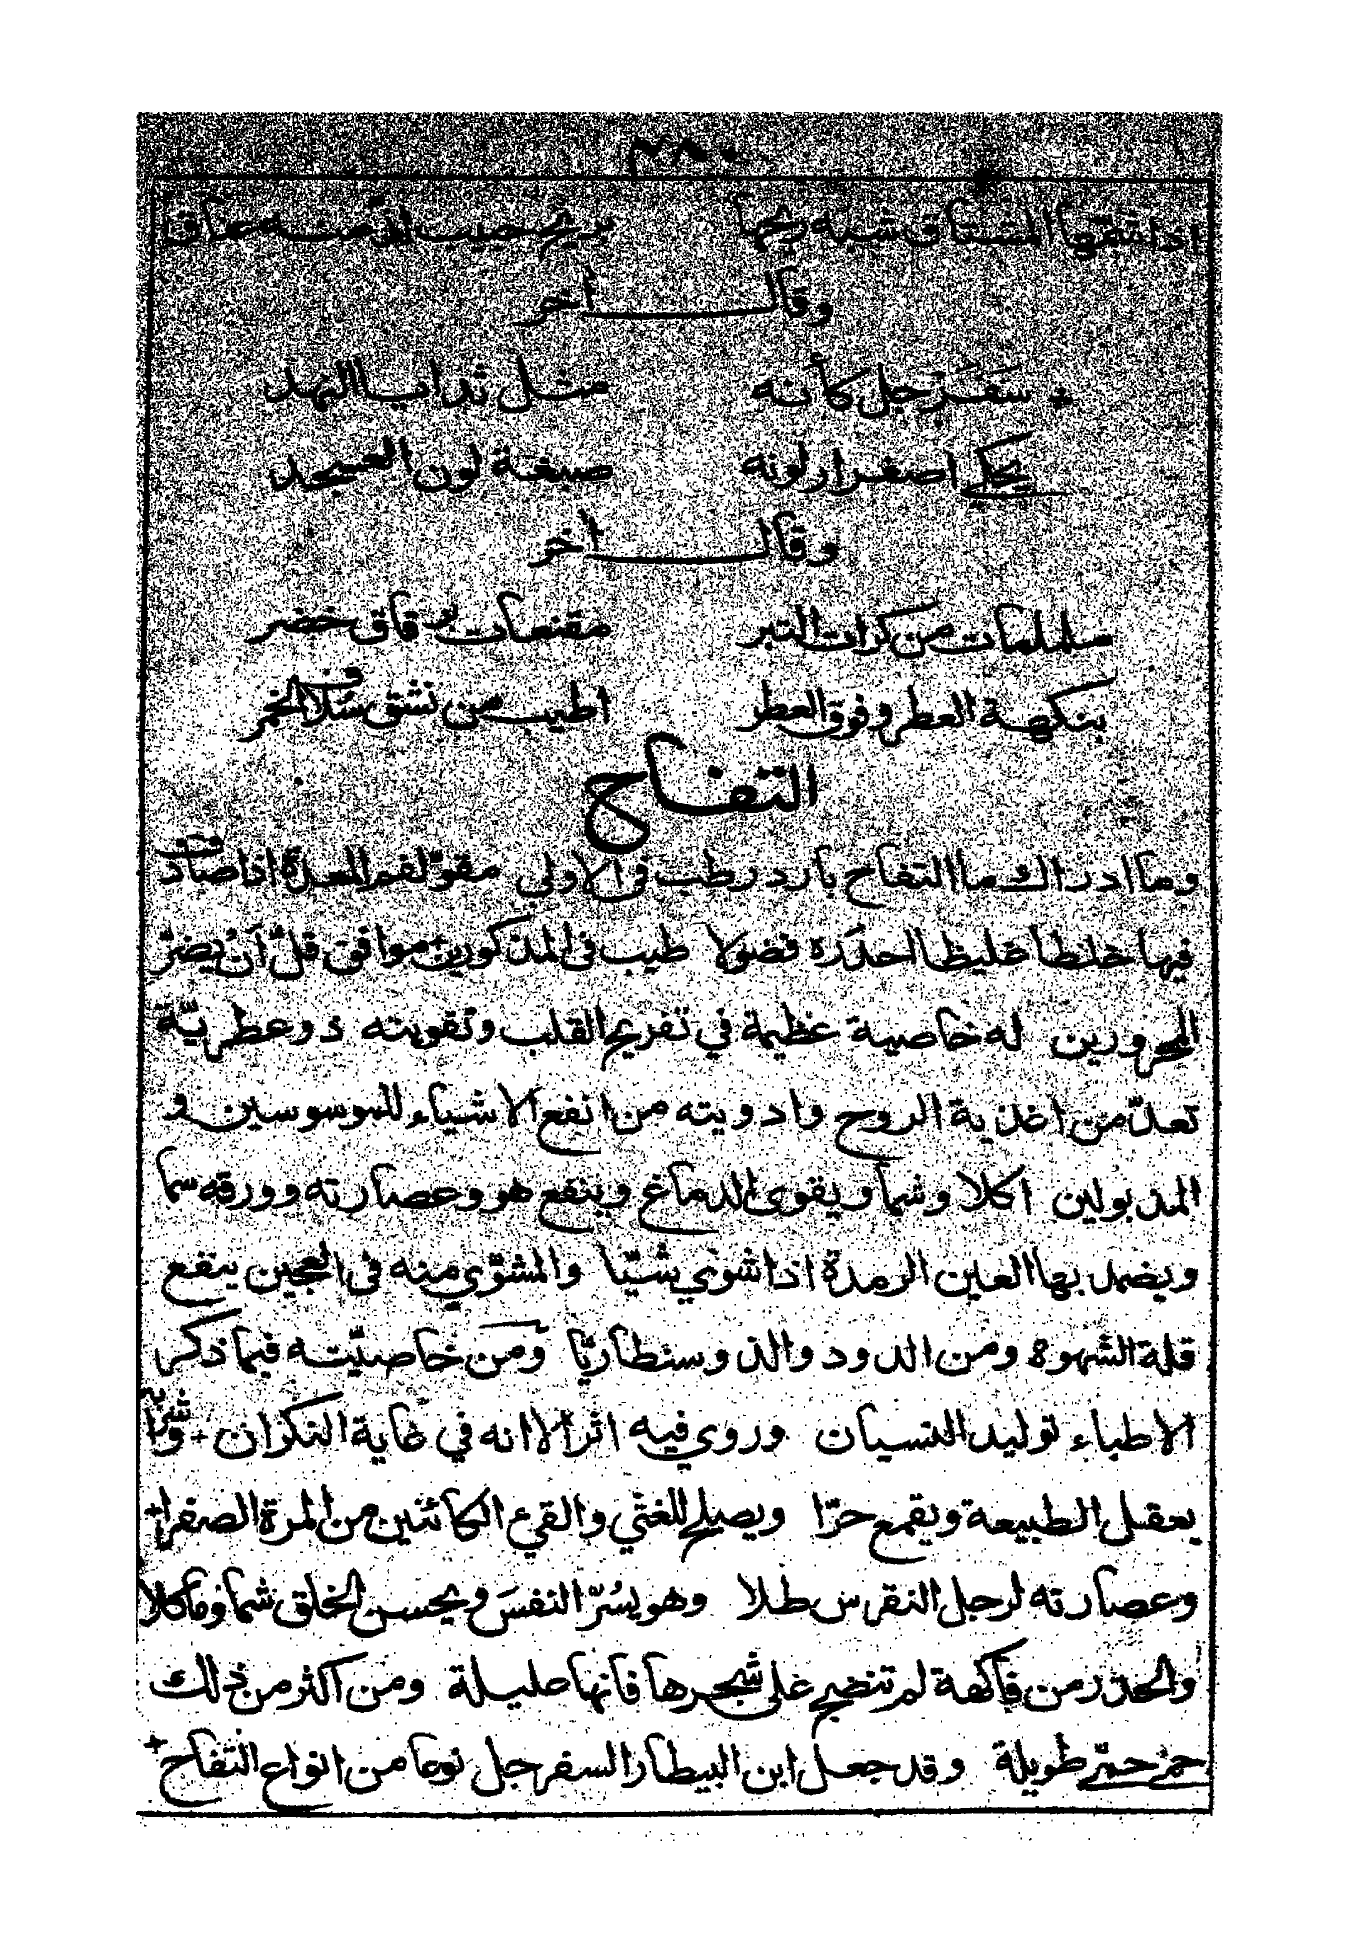 اذا شمها المشتاق شبه ريحها بريح حبيب
وقال آخر
سفرجل كأنه مثل ثدايا النهد
يحكي اصفرار لونه صبغة لون العسجد
وقال آخر
ململمات من كرات التبر مقنعات برقاق خضر
بنكهة العطر وفوق العطر اطيب من نشق سلاف الخمر
التفاح
وما ادراك ما التفاح بارد رطب في الاولى مقو لفم المعدة اذا صادف
فيها خلطا غليظا احدره فضولا طيب في المذكورين موافق قل أن يضر
المحرورين له خاصية عظيمة في تفريح القلب وتقويته ذو عطرية
تعد من اغذية الروح وادويته من انفع الاشياء للسوسوسين و
المدبولين اكلا وشما ويقوى الدماغ وينفع هو وعصارته وورقه سما
ويضمد بها العين الرمدة اذا شوي شيّا والمشوّي منه في العجين ينفع
قلة الشهوة ومن الدود والذ وسنطاريّا ومن خاصيّته فيما ذكر
الاطباء توليد النسيان وروي فيه اثر الا انه في غاية النكران
يعقل الطبيعة ويقمع حرّا ويصلح للغثي والقرع الكائنين من المرة الصفرا
وعصارته لرجل النقرس طلا وهو يسرّ النفس ويحسن الخلق شما وماكلا
والحذر من فاكهة لم تنضج على شجرها فانها مليلة ومن اكثر من ذلك
حم حمى طويلة وقد جعل ابن البيطار السفرجل نوعا من انواع التفاح